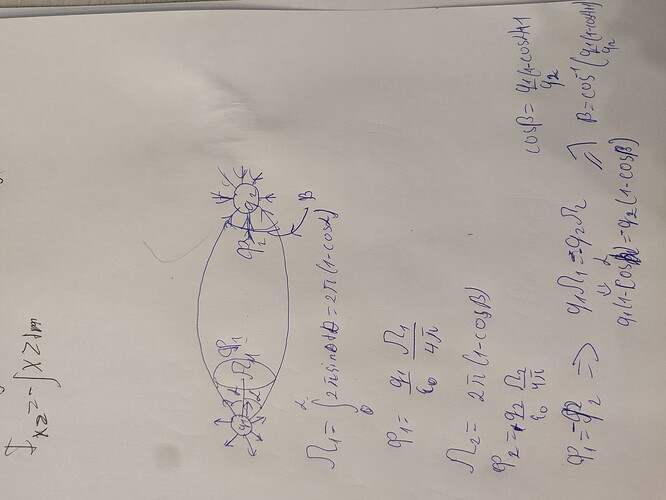 I_xz = -∫xzdm
q1
α
Ω1
Φ1
Φ2
q2
β
Ω1 = ∫_0^α 2π sinθ dθ = 2π(1-cosα)
Φ1 = q1/ε0 Ω1/4π
Ω2 = 2π(1-cosβ)
Φ2 = -q2/ε0 Ω2/4π
Φ1 = -Φ2 => q1Ω1 = -q2Ω2
q1(1-cosα) = -q2(1-cosβ)
cosβ = q1(1-cosα)+1/q2
=> β = cos⁻¹(q1(1-cosα)+1/q2)